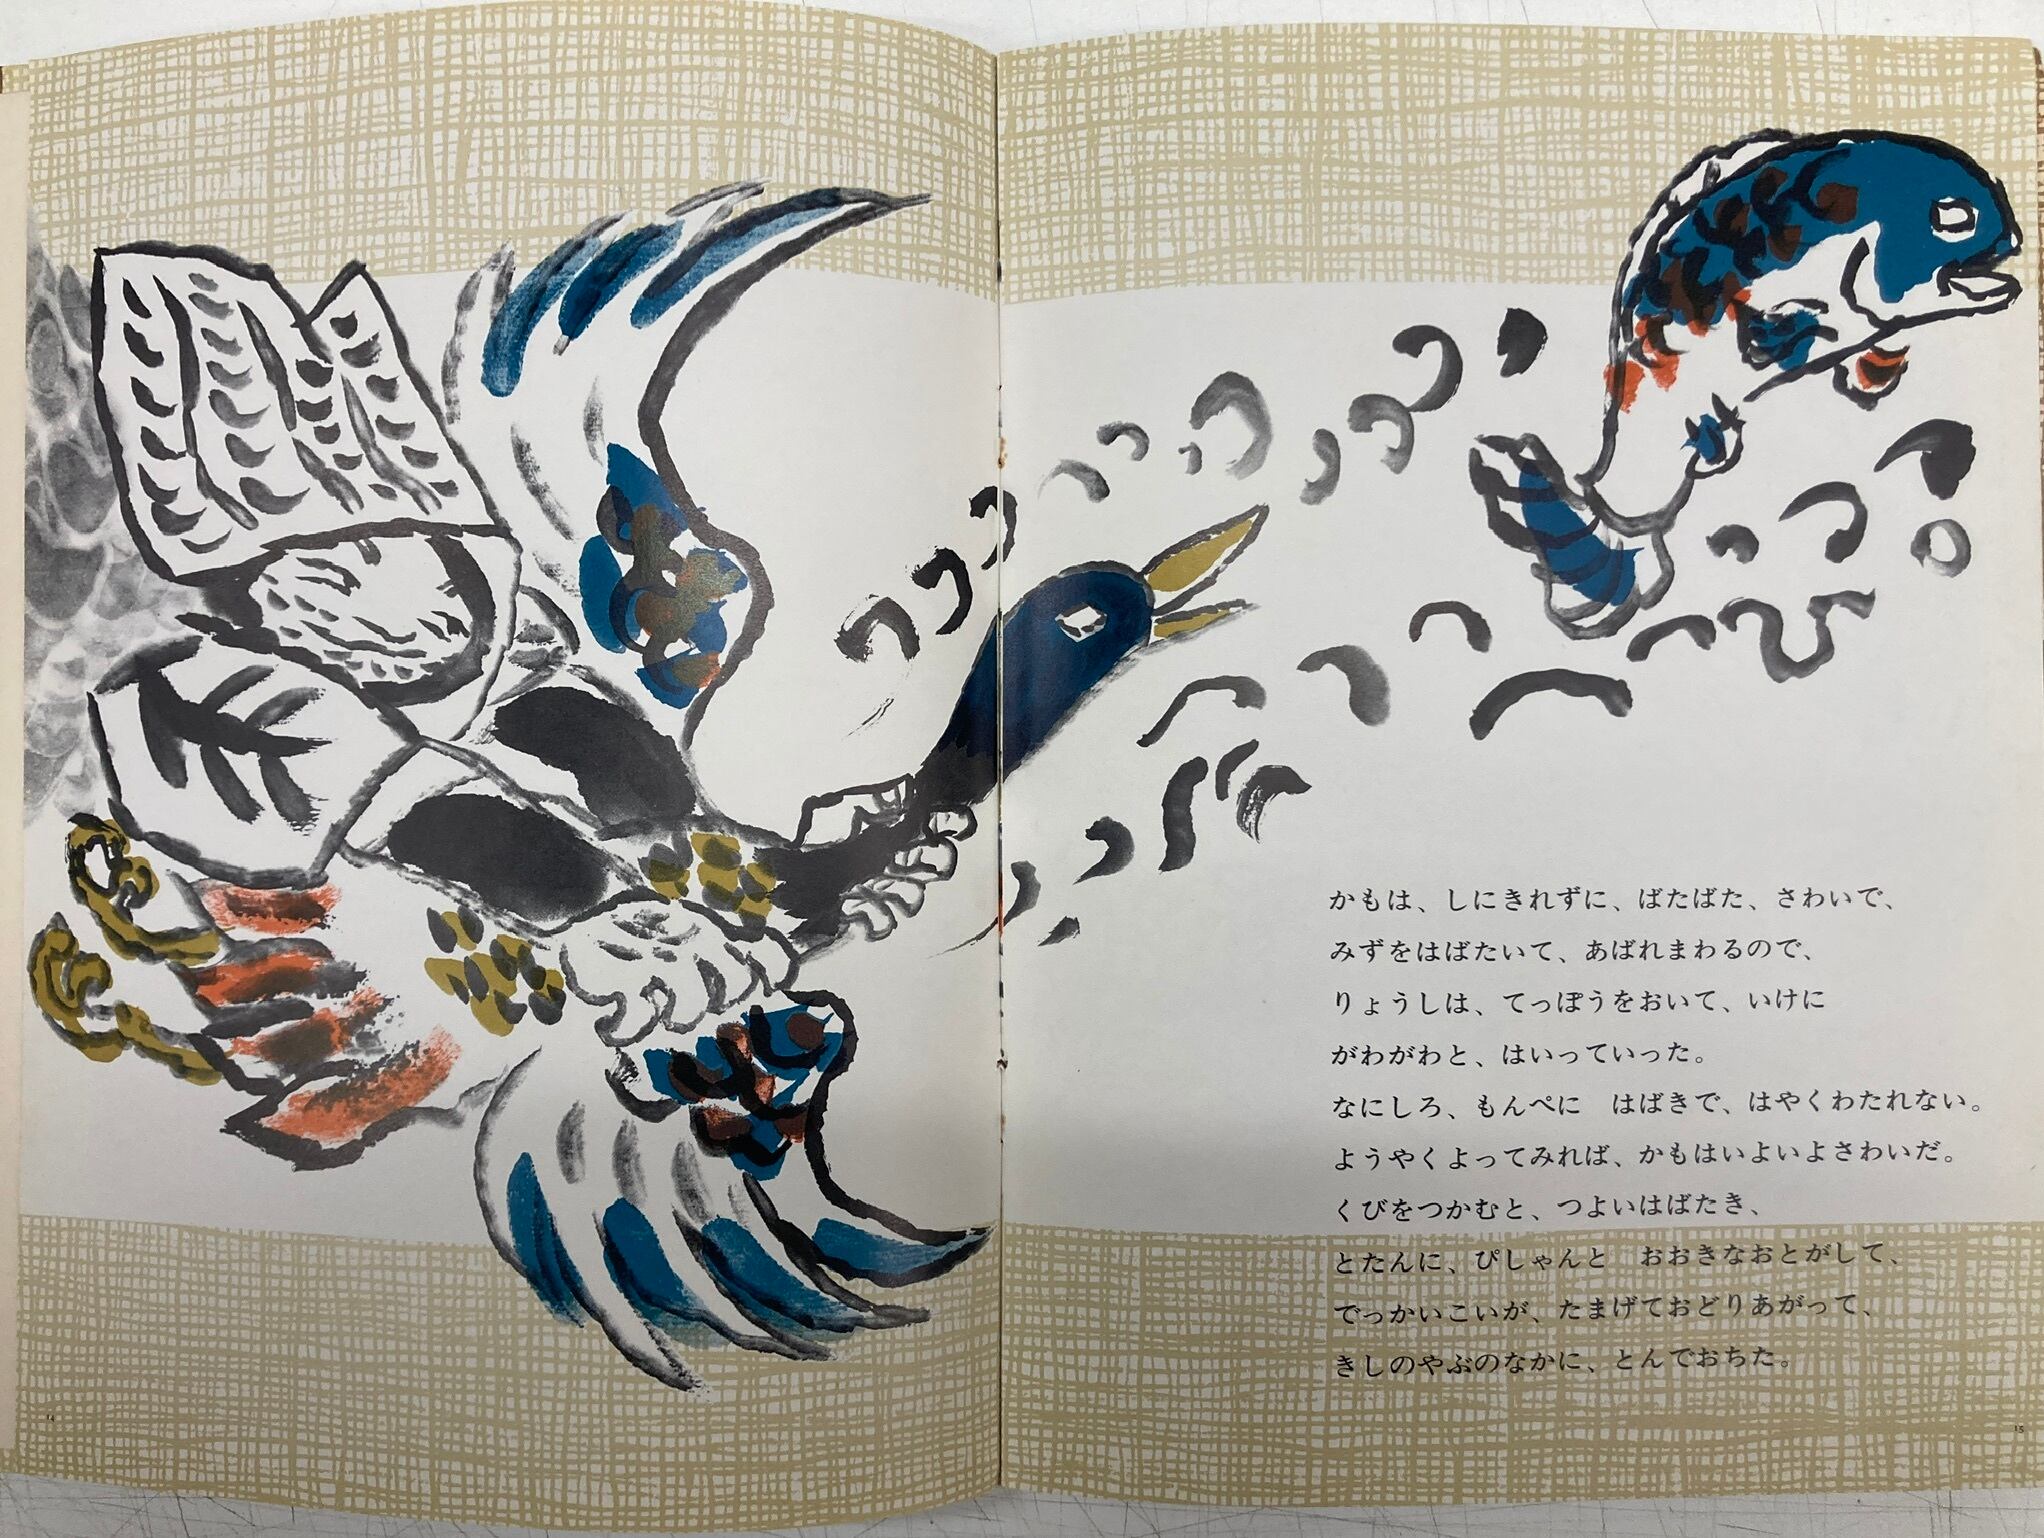 かもは、しにきれずに、ばたばた、さわいで、
みずをはばたいて、あばれまわるので、
りょうしは、てっぽうをおいて、いけに
がわがわと、はいっていった。
なにしろ、もんぺに　はばきで、はやくわたれない。
ようやくよってみれば、かもはいよいよさわいだ。
くびをつかむと、つよいはばたき、
とたんに、ぴしゃんと　おおきなおとがして、
でっかいこいが、たまげておどりあがって、
きしのやぶのなかに、とんでおちた。
14
15